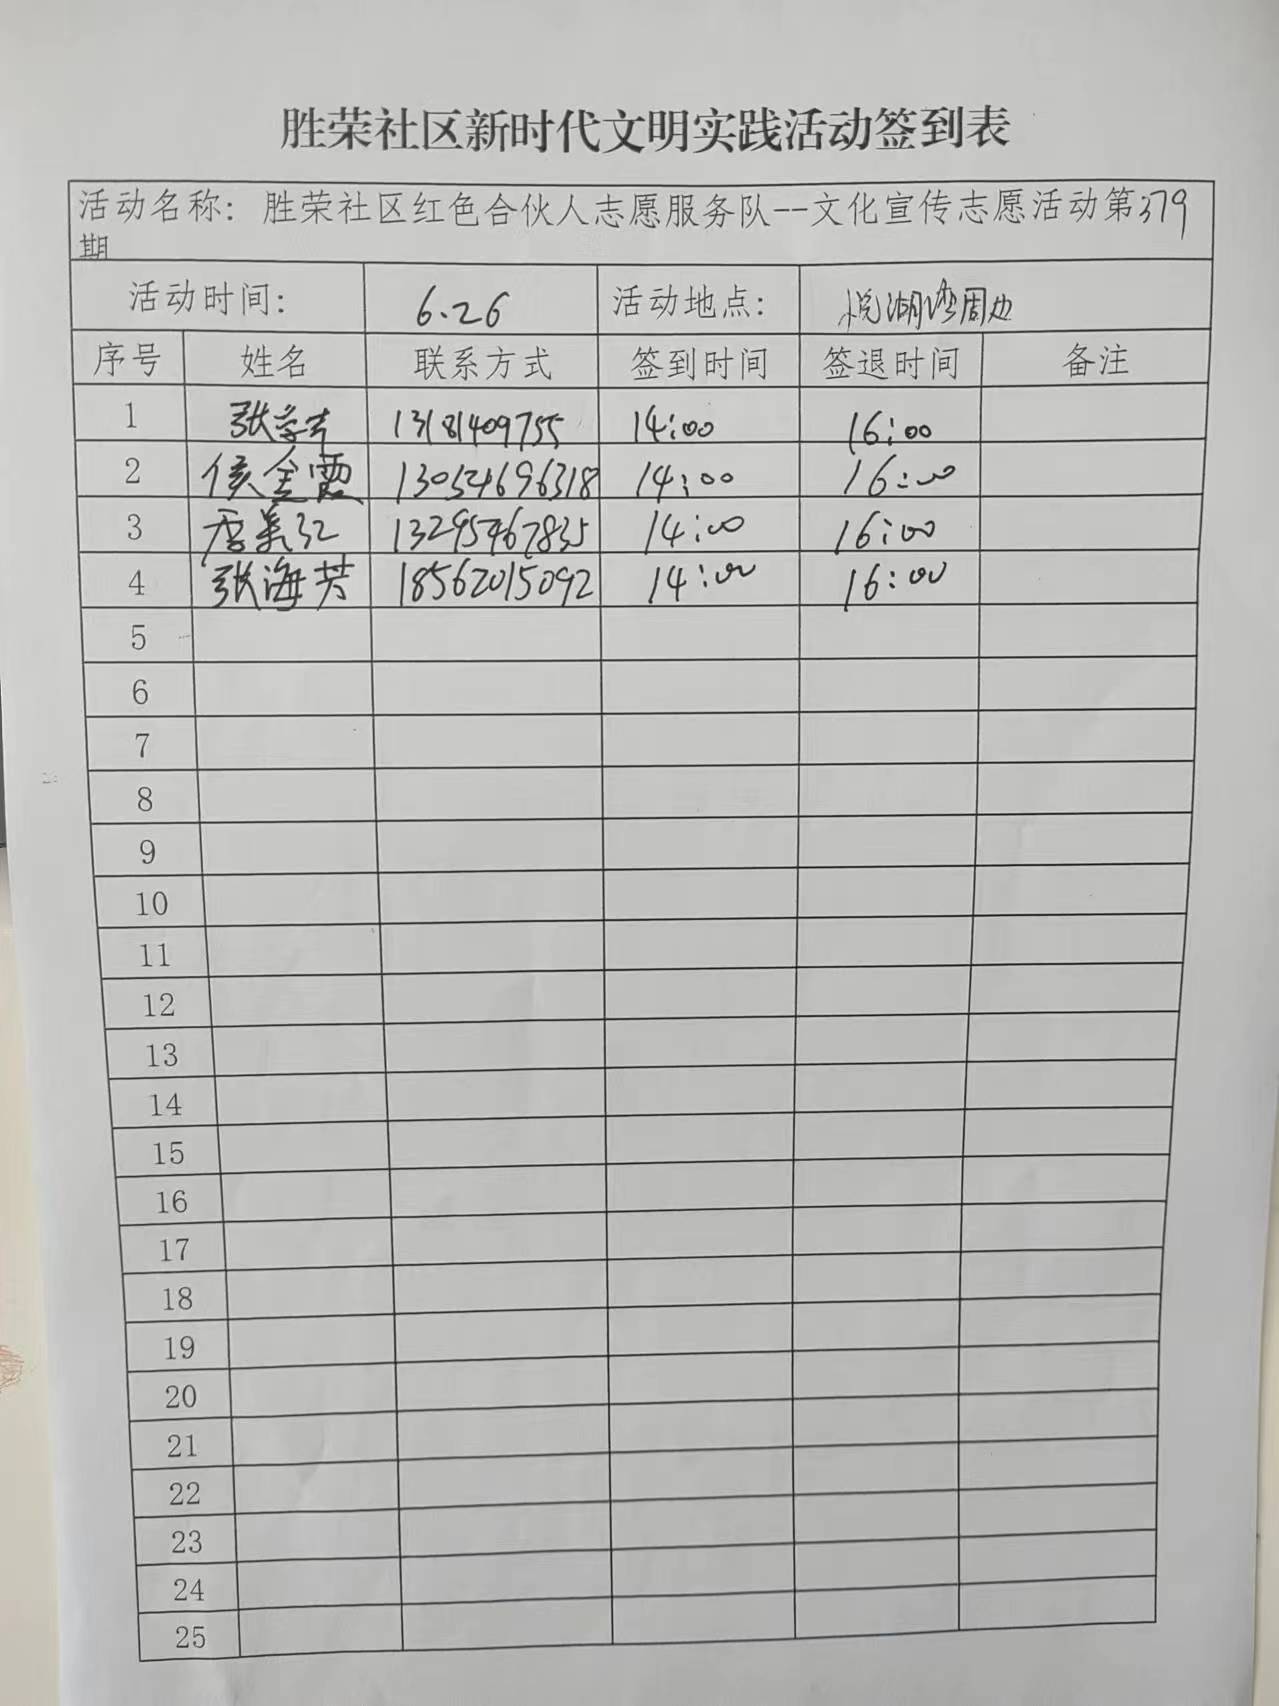 胜荣社区新时代文明实践活动签到表
活动名称：胜荣社区红色合伙人志愿服务队--文化宣传志愿活动第379
期
活动时间： 6.26 活动地点： 悦湖湾周边
序号 姓名 联系方式 签到时间 签退时间 备注
1 13181409755 14:00 16:00
2 侯金霞 13054696318 14:00 16:00
3 李美红 13295467835 14:00 16:00
4 张海芳 18562015092 14:00 16:00
5
6
7
8
9
10
11
12
13
14
15
16
17
18
19
20
21
22
23
24
25